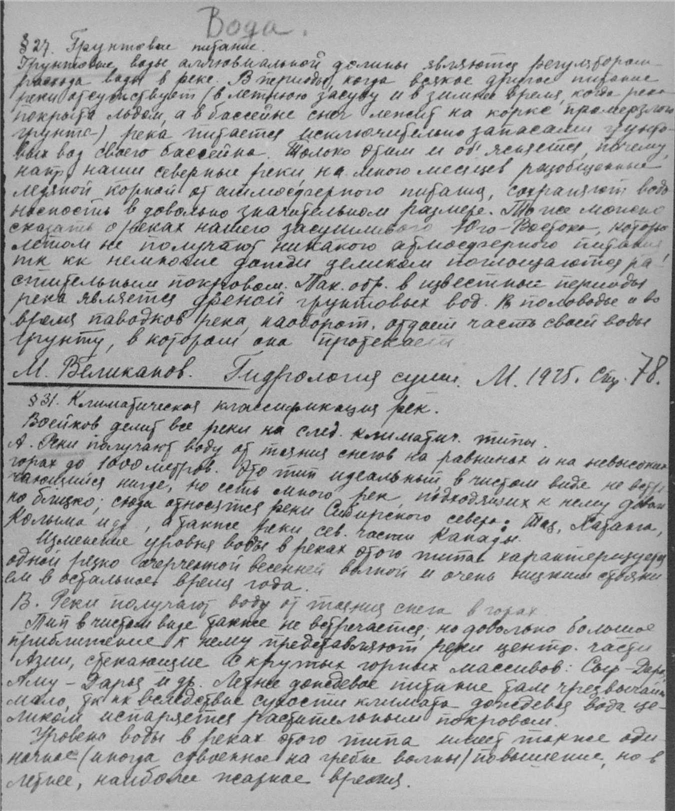 Вода.
§ 27. Грунтовое питание.
Грунтовые воды аллювиальной долины являются регулятором
расхода воды в реке. В периоды, когда всякое другое питание
реки отсутствует (в летнюю засуху и в зимнее время, когда река
покрыта льдом, а в бассейне снег лежит на корке промерзлого
грунта) река питается исключительно запасами грунто-
вых вод своего бассейна. Только этим и об'ясняется, почему,
напр. наши северные реки на много месяцев разобщенные
ледяной коркой от атмосферного питания, сохраняют водо-
носность в довольно значительном размере. То же можно
сказать о реках нашего засушливого Юго-Востока, которые
летом не получают никакого атмосферного питания
тк кк немногие дожди целиком поглощаются ра-
стительным покровом. Так. обр. в известные периоды
река является дреной грунтовых вод. В половодье и во
время паводков река, наоборот, отдает часть своей воды
грунту, в котором она протекает
М. Великанов. Гидрология суши. М. 1925. Стр. 78.
§ 31. Климатическая классификация рек.
Воейков делит все реки на след. климатич. типы.
А. Реки получают воду от таяния снегов на равнинах и на невысоких
горах до 1000 метров. Это тип идеальный, в чистом виде не встре-
чающийся нигде, но есть много рек подходящих к нему доволь-
но близко; сюда относятся реки Сибирского севера: Таз, Хатанга,
Колыма и др., а также реки сев. части Канады.
Изменение уровня воды в реках этого типа характеризуется
одной резко очерченной весенней волной и очень низким стояни-
ем в остальное время года.
В. Реки получают воду от таяния снега в горах
Тип в чистом виде также не встречается; но довольно большое
приближение к нему представляют реки центр. части
Азии, стекающие с крутых горных массивов: Сыр-Дарья,
Аму-Дарья и др. Летнее дождевое питание там чрезвычайно
мало, тк кк вследствие сухости климата дождевая вода це-
ликом испаряется растительным покровом.
Уровень воды в реках этого типа имеет также оди-
ночное (иногда сдвоенное на гребне волны) повышение, но в
летнее, наиболее жаркое время.